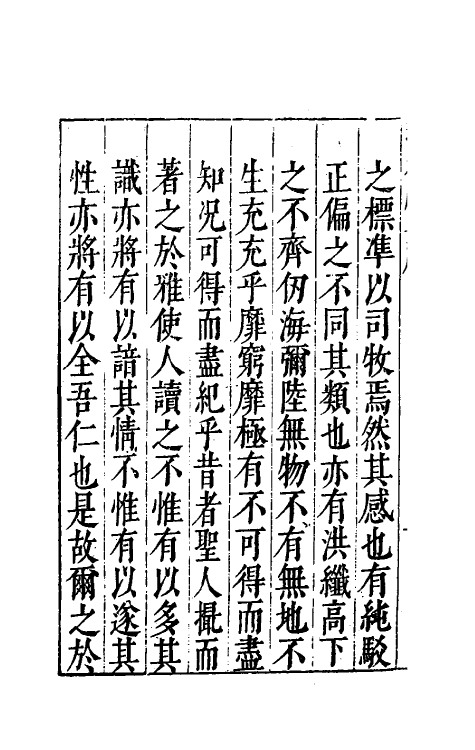 之標準以司牧焉然其感也有純駁
正偏之不同其類也亦有洪纖高下
之不齊仞海彌陸無物不有無地不
生充充乎靡窮靡極有不可得而盡
知况可得而盡紀乎昔者聖人撮而
著之於雅使人讀之不惟有以多其
識亦將有以諳其情不惟有以遂其
性亦將有以全吾仁也是故爾之於